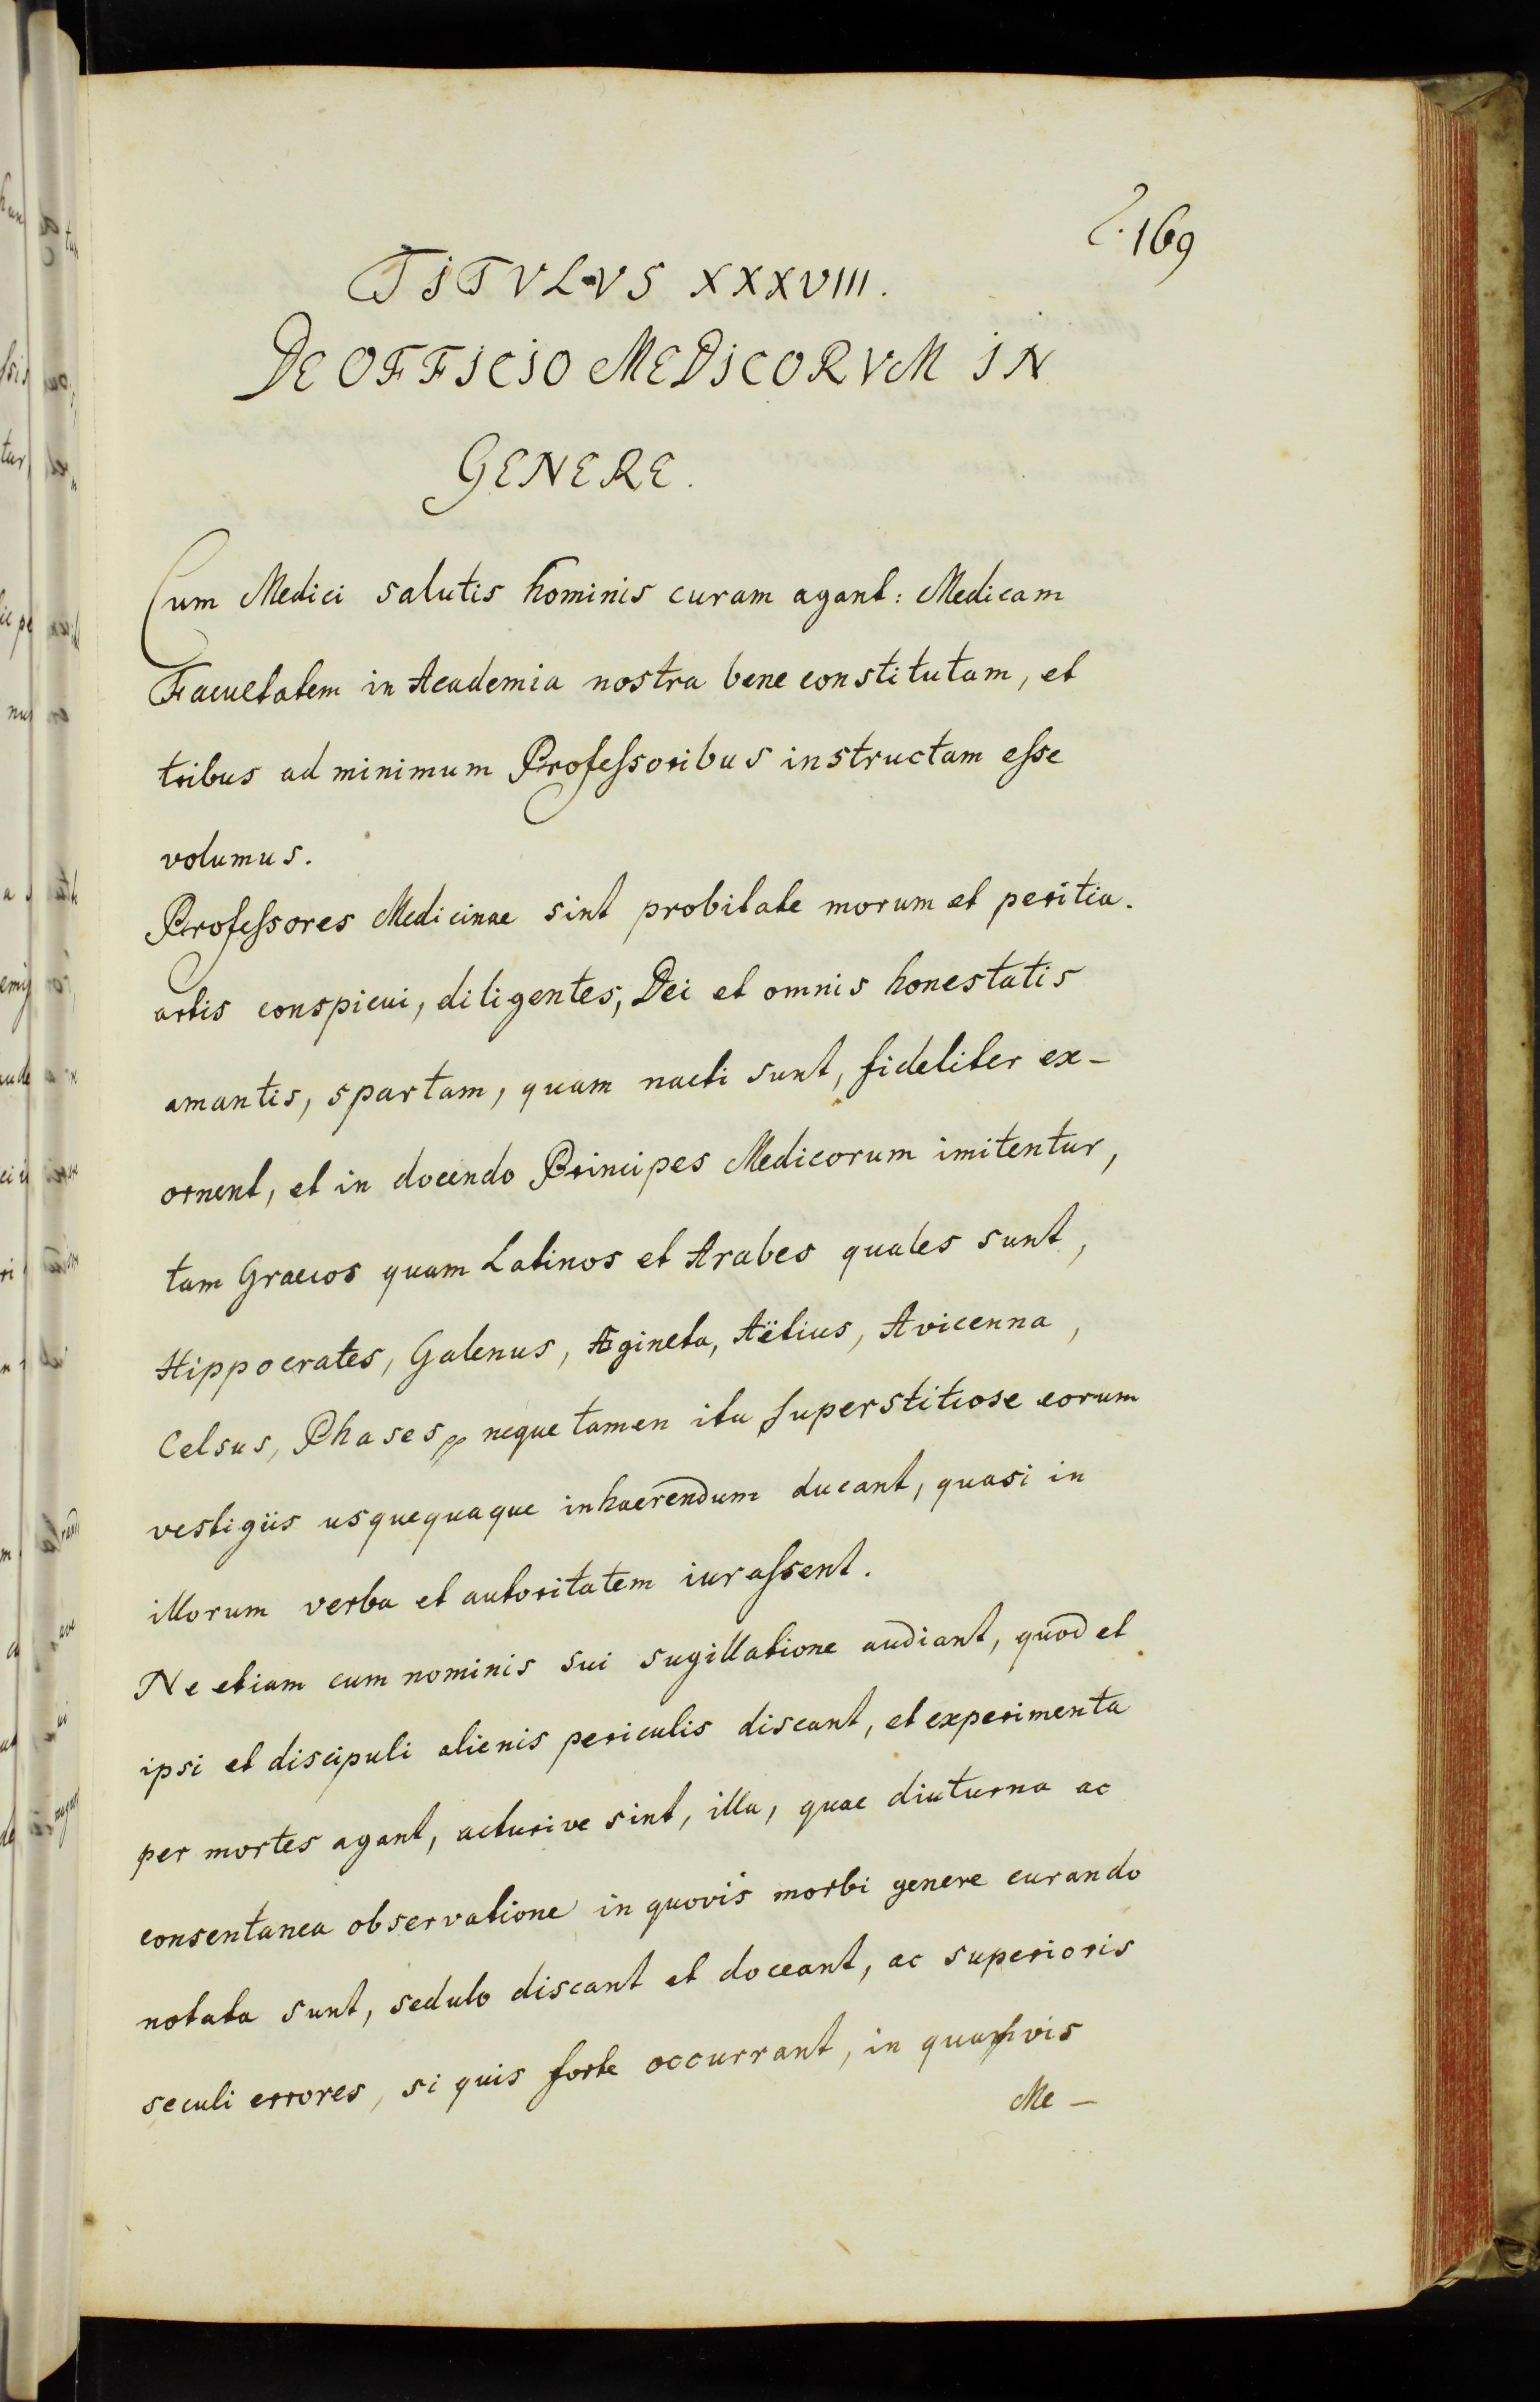 169
TITVLVS XXXVIII.
DE OFFICIO MEDICORVM IN
GENERE.
Cum Medici salutis hominis curam agant: Medicam
Facultatem in Academia nostra bene constitutam, et
tribus ad minimum Professoribus instructam esse
volumus.
Professores Medicinae sint probitate morum et peritia.
artis conspicui, diligentes, Dei et omnis honestatis
amantis, spartam, quam nacti sunt, fideliter ex-
ornent, et in docendo Principes Medicorum imitentur,
tam Graecos quam Latinos et Arabes quales sunt,
Hippocrates, Galenus, Ægineta, Aëtius, Avicenna,
Celsus, Rhases, neque tamen ita superstitiose eorum
vestigiis usquequaque inhaerendum ducant, quasi in
illorum verba et autoritatem iurassent.
Ne etiam cum nominis sui sugillatione audiant, quod et
ipsi et discipuli alienis periculis discant, et experimenta
per mortes agant, acturive sint, illa, quae diuturna ac
consentanea observatione in quovis morbi genere curando
notata sunt, sedulo discant et doceant, ac superioris
seculi errores, si quis forte occurrant, in quamvis
Me-